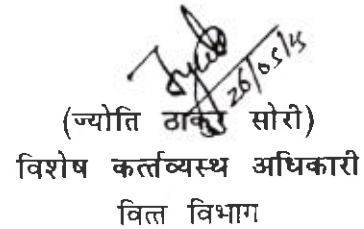 26/05/15
(ज्योति ठाकुर सोरी)
विशेष कर्त्तव्यस्थ अधिकारी
वित्त विभाग